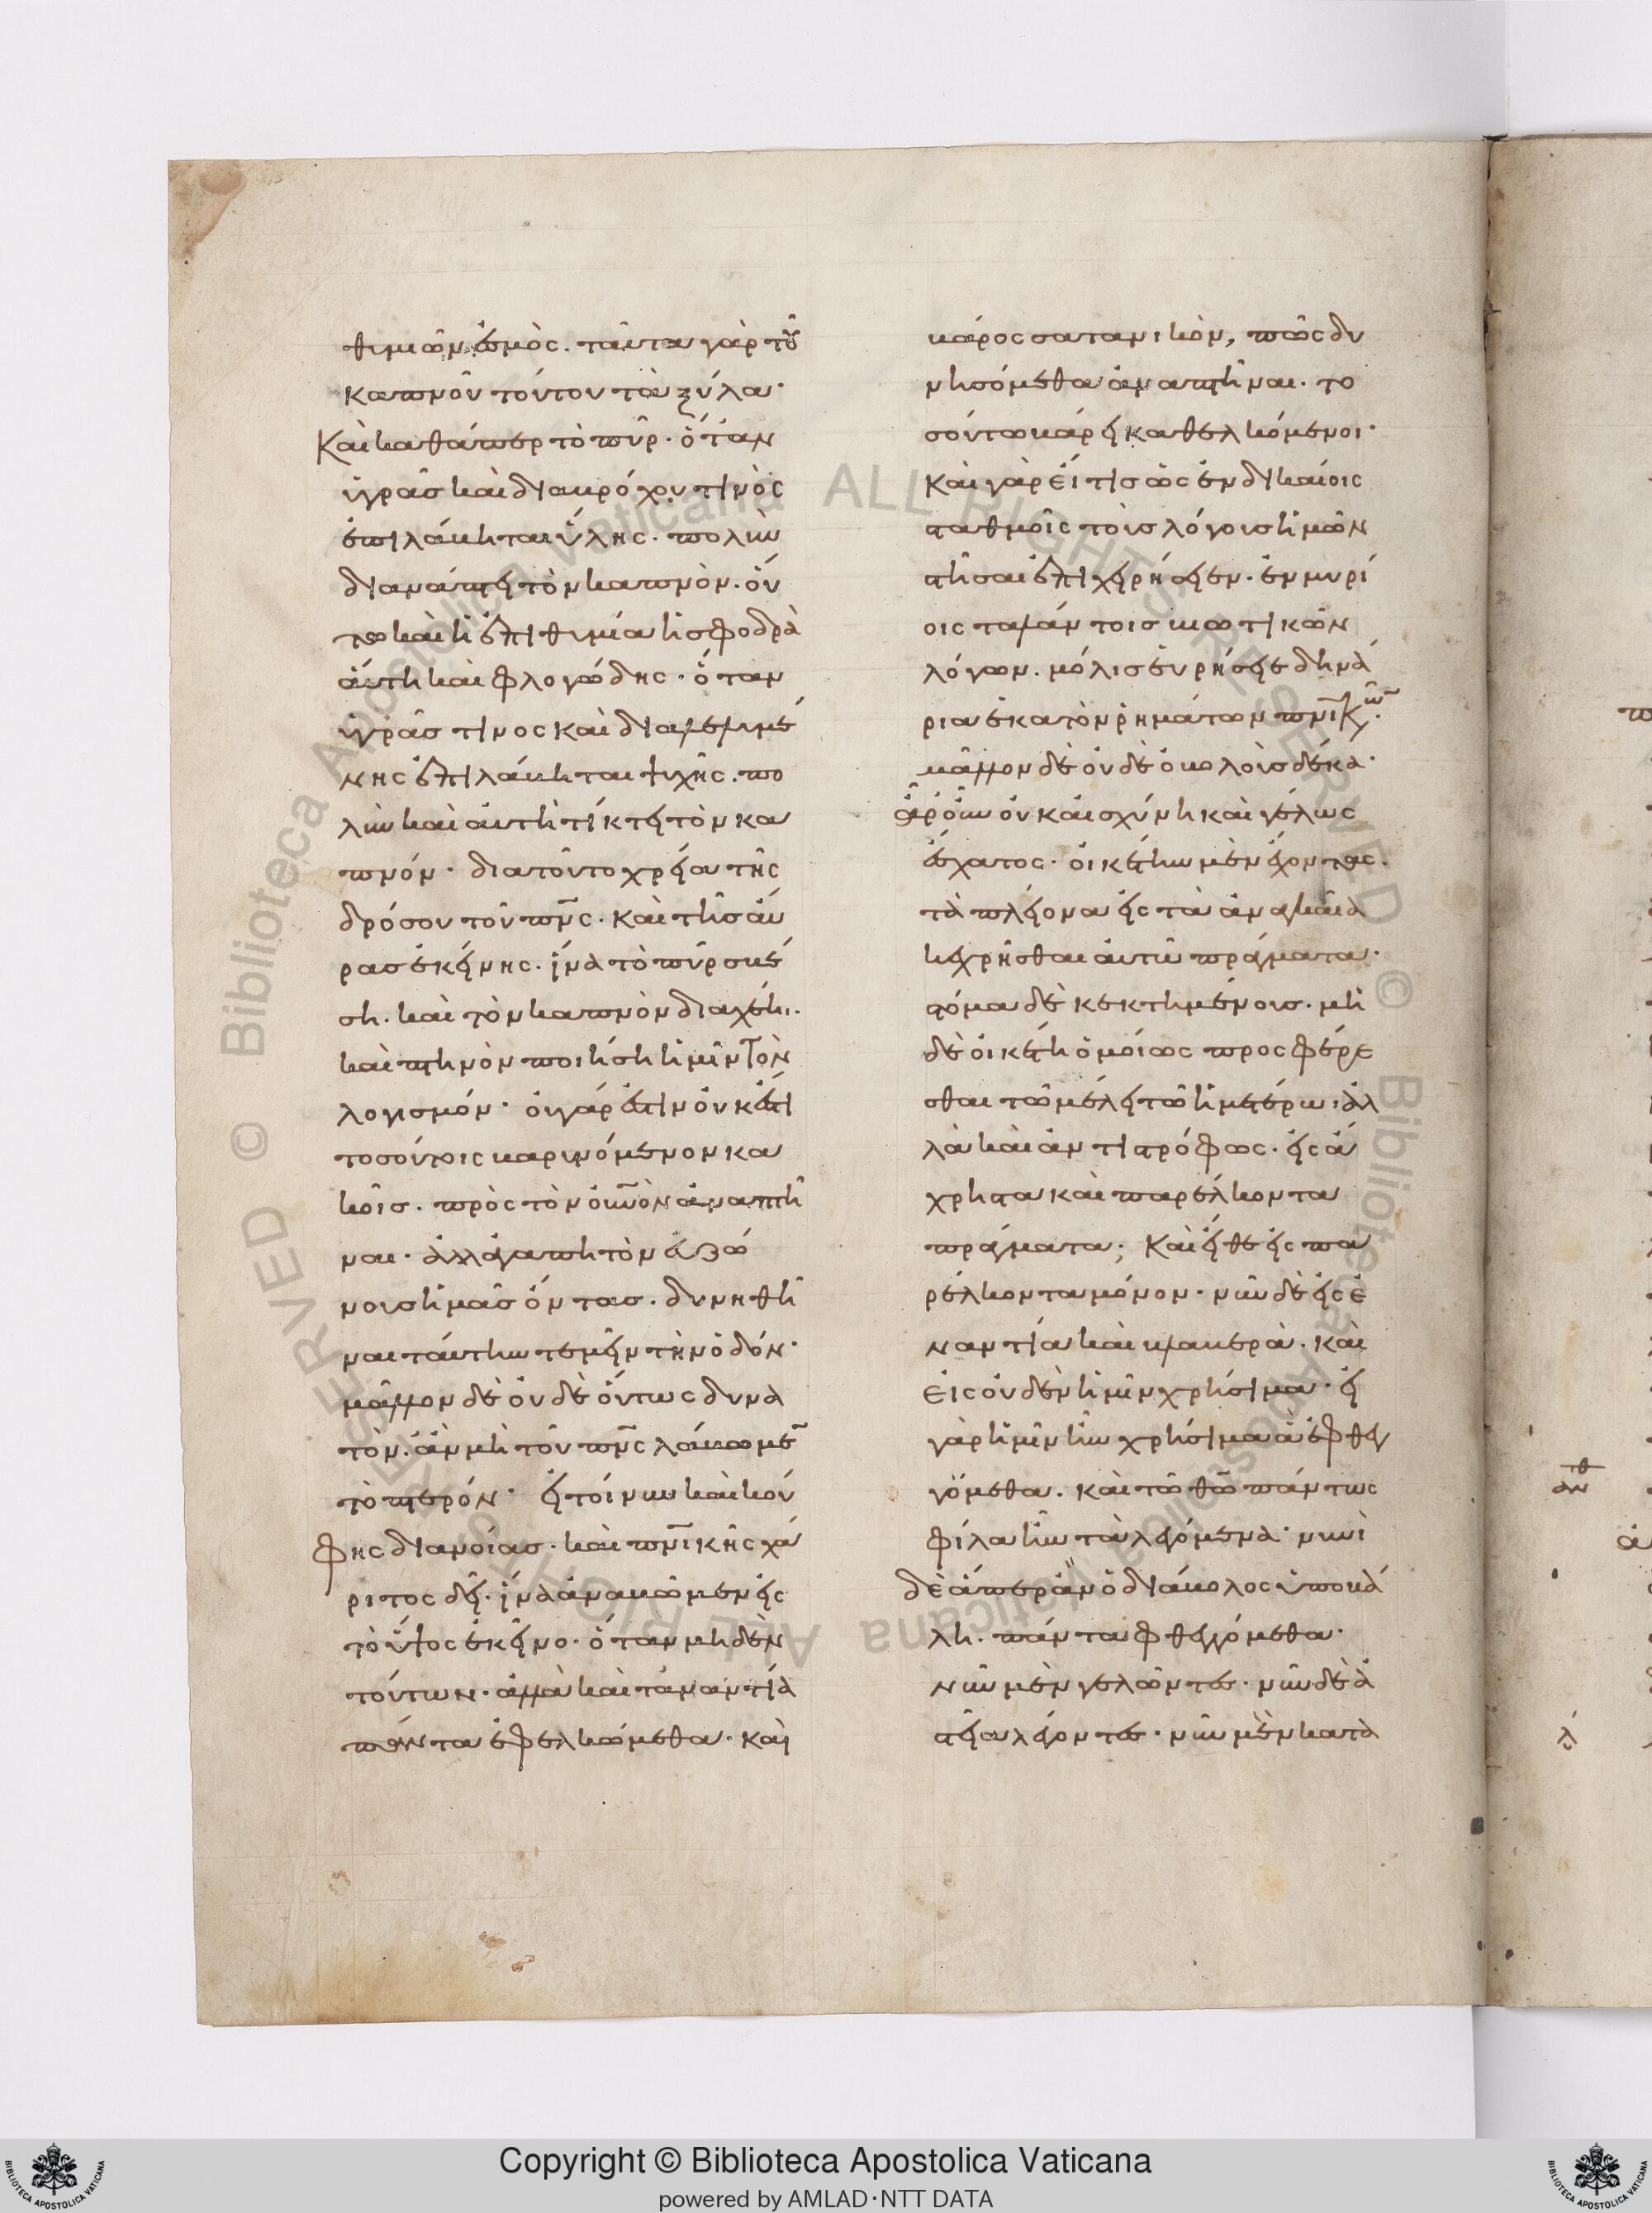 θυμιῶν ἐσμὸς. ταῦτα γὰρ τοῦ
καπνοῦ τούτου τὰ ξύλα·
Καὶ καθάπερ τὸ πῦρ· ὅταν
ὑγρᾶσ καὶ διαβρόχου τινὸς
ἐπιλάβηται ὕλης. πολὺν
διανάπτει τὸν καπνὸν. οὕ
τω καὶ ἡ ἐπιθυμία ἡ σφοδρὰ
αὕτη καὶ φλογώδης· ὅταν
ὑγρᾶσ τινος καὶ
νης ἐπιλάβηται ψυχῆς. πο
λὺν καὶ αὐτὴ τίκτει τὸν κα
πνόν· διατοῦτο χρεία τῆς
δρόσου τοῦ πν̅ς· καὶ τῆσ αὔ
ρασ ἐκείνης. ἵνα τὸ πῦρ σβέ
ση. καὶ τὸν καπνὸν διαχέηι.
καὶ πτηνὸν ποιήση ἡμῖν τὸν
λογισμόν· οὐγάρ ἐστιν οὐκέστι
τοσούτοις βαρυνόμενον κα
κοῖσ. πρὸς τὸν οὐν̅ὸν ἀναπτῆ
ναι· ἀλλ' ἀγαπητὸν εὐζώ
νουσ ἡμᾶσ ὄντασ. δυνηθῆ
ναι ταύτην τεμεῖν τὴν ὁδόν·
μᾶλλον δὲ οὐδὲ οὕτως δυνα
τὸν. ἂν μὴ τοῦ πν̅ς λάβωμε̅
τὸ πτερόν· εἰ τοίνυν καὶ κού
φης διανοίασ. καὶ πν̅ικῆς χά
ριτος δεῖ. ἵνα ἀναβῶμεν εἰς
τὸ ὕψος ἐκεῖνο· ὅταν μηδὲν
τούτων. ἀλλὰ καὶ τἀναντία
πάντα ἐφελκώμεθα· καὶ
βάρος σατανικὸν, πῶς δυ
νησόμεθα ἀναπτῆναι. το
σούτω βάρει καθελκόμενοι·
Καὶ γὰρ εἴ τισ ὡς ἐν δικαίοις
σταθμοῖς τοὺσ λόγουσ ἡμῶν
στῆσαι ἐπιχειρήσειεν. ἐν μυρί
οις ταλάντοισ βιωτικῶν
λόγων. μόλισ εὑρήσειε δηνά
ρια ἑκατὸν ῥημάτων πν̅ικῶν·
μᾶλλον δὲ οὐδὲ ὀβολοὺσ δέκα·
ἆρ' οὖν οὐκ αἰσχύνη καὶ γέλως
ἔσχατος· οἰκέτην μὲν ἔχοντας.
τὰ πλείονα εἰς τὰ ἀναγκαῖα
κεχρῆσθαι αὐτῶ πράγματα·
στόμα δὲ κεκτημένουσ. μὴ
δὲ οἰκέτη ὁμοίως προσφέρε
σθαι τῶ μέλει τῶ ἡμετέρω. ἀλ
λὰ καὶ ἀντιστρόφως. εἰς ἄ
χρηστα καὶ παρέλκοντα
πράγματα; Καὶ εἴθε εἰς πα
ρέλκοντα μόνον· νῦν δὲ εἰς ἐ
ναντία καὶ βλαβερὰ. καὶ
εἰς οὐδὲν ἡμῖν χρήσιμα· εἰ
γὰρ ἡμῖν ἦν χρήσιμα ἃ ἐφθεγ
γόμεθα. καὶ τῶ θ̅ῶ πάντως
φίλα ἦν τὰ λεγόμενα· νυνὶ
δὲ ἅπερ ἂν ὁ διάβολος ὑποβά
λη. πάντα φθεγγόμεθα·
Νῦν μὲν γελῶντες. νῦν δὲ ἀ
στεῖα λέγοντες· νῦν μὲν κατα